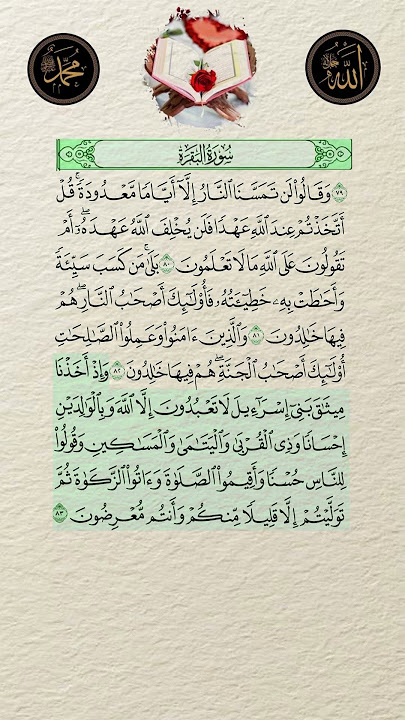 محمد ﷺ
الله جل جلاله
سُورَةُ البَقَرَةِ
٧٩ وَقَالُوا۟ لَن تَمَسَّنَا ٱلنَّارُ إِلَّآ أَيَّامًا مَّعْدُودَةً ۚ قُلْ
أَتَّخَذْتُمْ عِندَ ٱللَّهِ عَهْدًا فَلَن يُخْلِفَ ٱللَّهُ عَهْدَهُۥٓ ۖ أَمْ
تَقُولُونَ عَلَى ٱللَّهِ مَا لَا تَعْلَمُونَ ٨٠ بَلَىٰ ۚ مَن كَسَبَ سَيِّئَةً
وَأَحَٰطَتْ بِهِۦ خَطِيٓـَٔتُهُۥ فَأُو۟لَٰٓئِكَ أَصْحَٰبُ ٱلنَّارِ ۖ هُمْ
فِيهَا خَٰلِدُونَ ٨١ وَٱلَّذِينَ ءَامَنُوا۟ وَعَمِلُوا۟ ٱلصَّٰلِحَٰتِ
أُو۟لَٰٓئِكَ أَصْحَٰبُ ٱلْجَنَّةِ ۖ هُمْ فِيهَا خَٰلِدُونَ ٨٢ وَإِذْ أَخَذْنَا
مِيثَٰقَ بَنِىٓ إِسْرَٰٓءِيلَ لَا تَعْبُدُونَ إِلَّا ٱللَّهَ وَبِٱلْوَٰلِدَيْنِ
إِحْسَانًا وَذِى ٱلْقُرْبَىٰ وَٱلْيَتَٰمَىٰ وَٱلْمَسَٰكِينِ وَقُولُوا۟
لِلنَّاسِ حُسْنًا وَأَقِيمُوا۟ ٱلصَّلَوٰةَ وَءَاتُوا۟ ٱلزَّكَوٰةَ ثُمَّ
تَوَلَّيْتُمْ إِلَّا قَلِيلًا مِّنكُمْ وَأَنتُم مُّعْرِضُونَ ٨٣